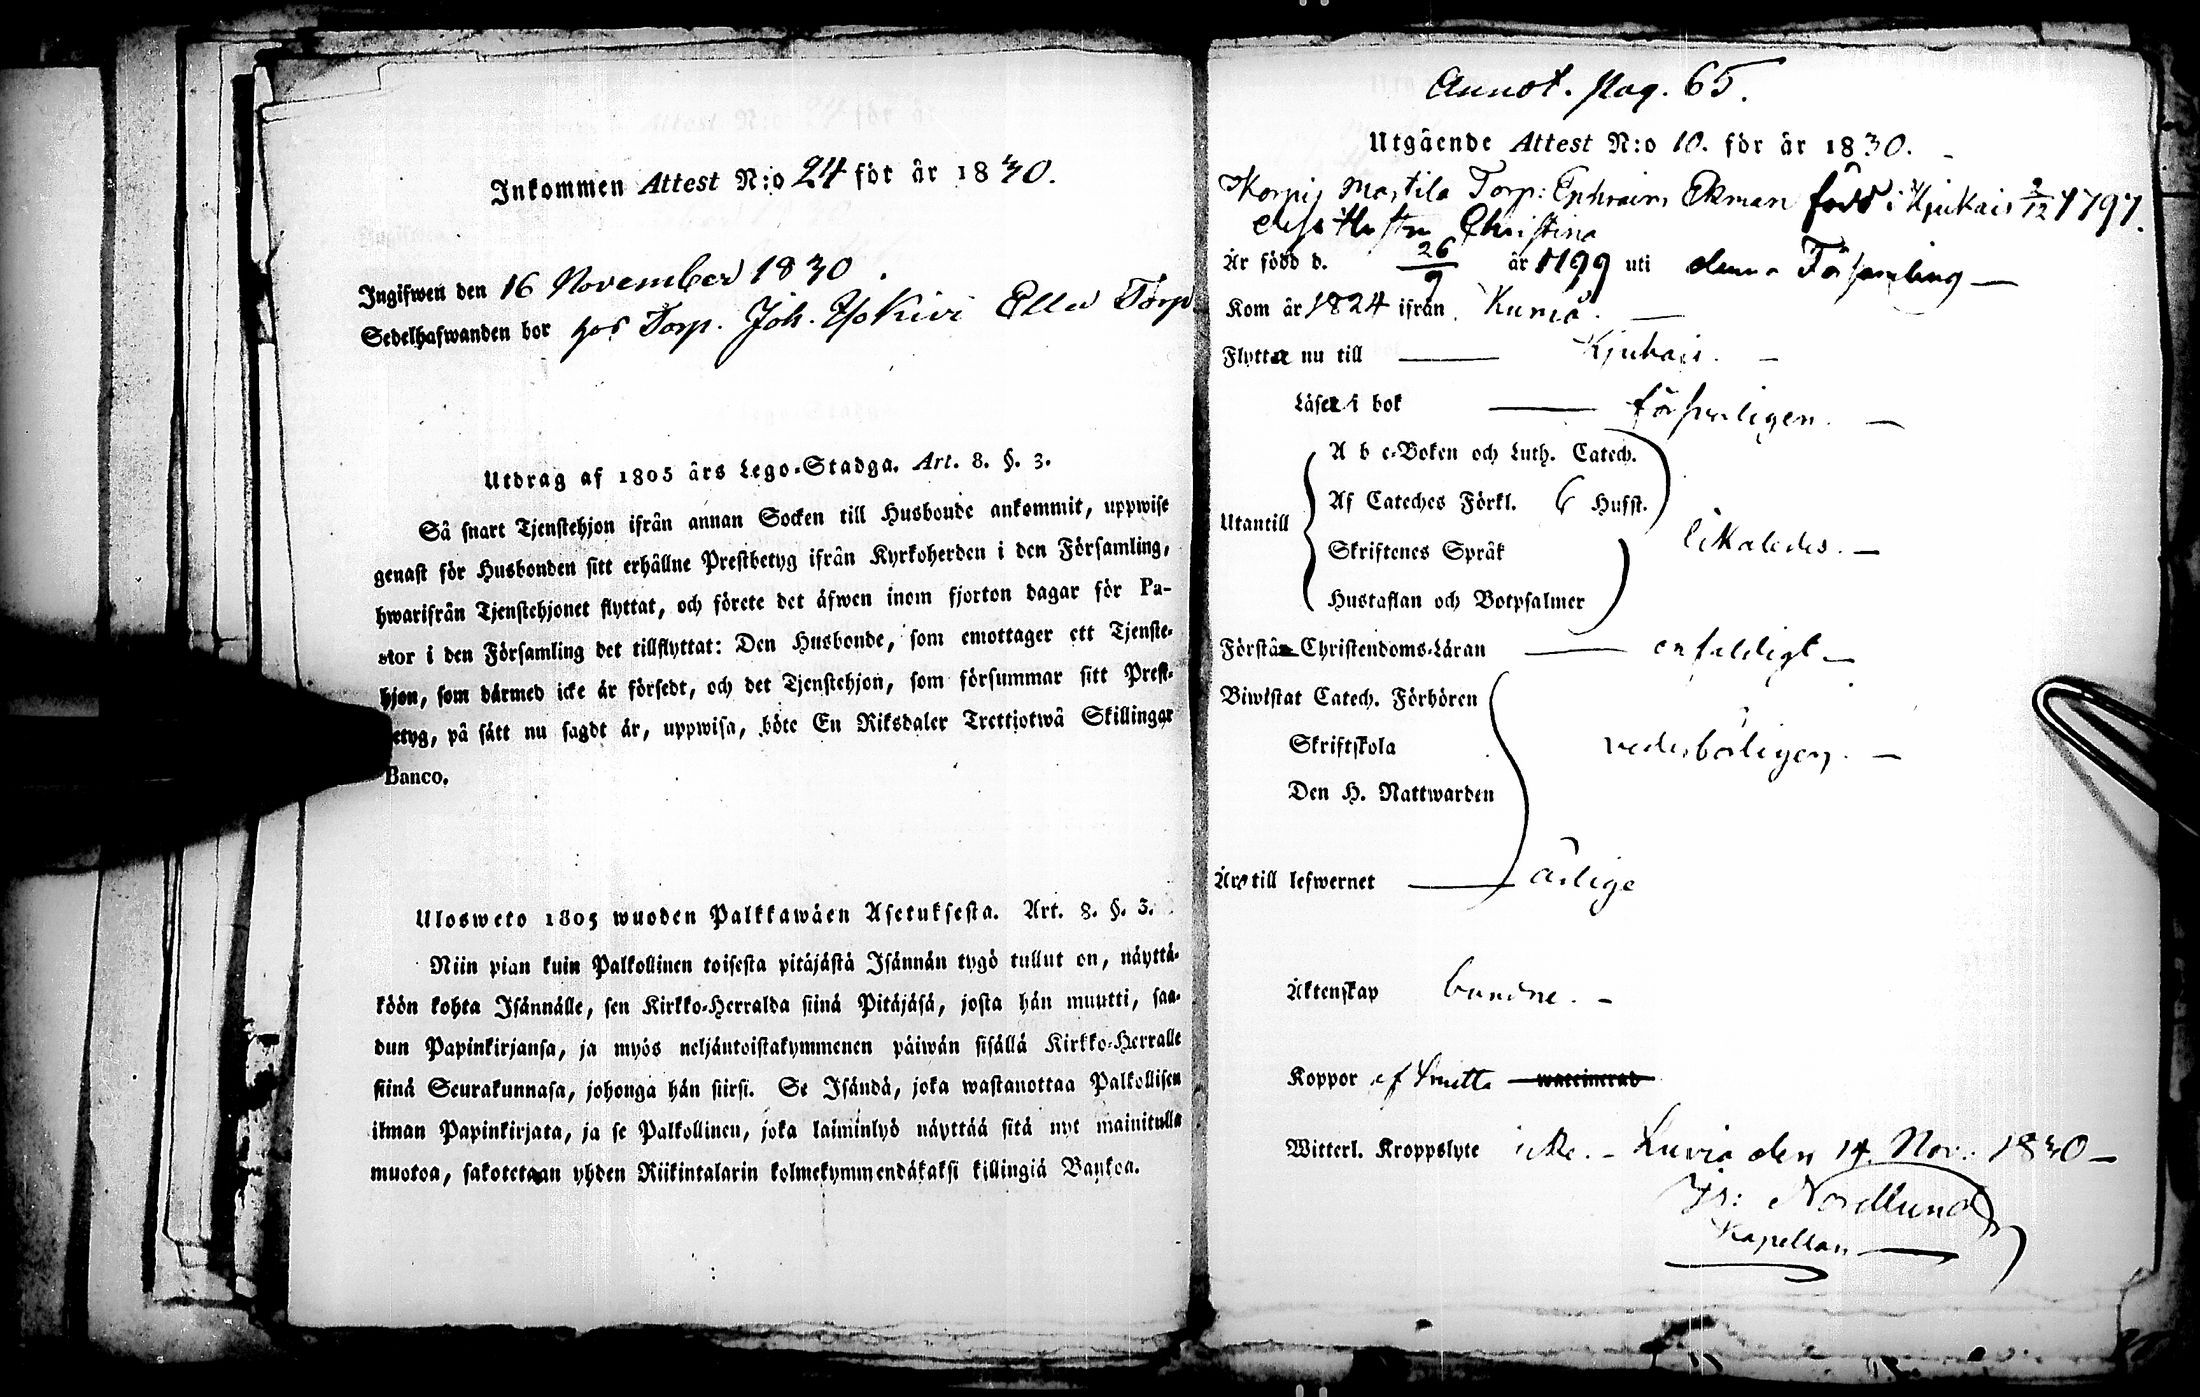 Inkommen Attest N:o 24 för år 1830.
Ingifwen den 16 November 1830.
Sedelhafwanden bor hos Torp. Joh. Isokivi Eller Torp
Utdrag af 1805 års Lego-Stadga. Art. 8. §. 3.
Så snart Tjenstehjon ifrån annan Socken till Husbonde ankommit, uppwise
genast för Husbonden sitt erhållne Prestbetyg ifrån Kyrkoherden i den Församling,
hwarifrån Tjenstehjonet flyttat, och förete det äfwen inom fjorton dagar för Pa-
stor i den Församling det tillflyttat: Den Husbonde, som emottager ett Tjenste-
hjon, som därmed icke är försedt, och det Tjenstehjon, som försummar sitt Prest-
etyg, på sätt nu sagdt är, uppwisa, böte En Riksdaler Trettiotwå Skillingar
Banco.
Ulosweto 1805 wuoden Palkkawäen Asetuksesta. Art. 8. §. 3.
Niin pian kuin Palkollinen toisesta pitäjästä Isännän tygö tullut on, näyttä-
köön kohta Isännälle, sen Kirkko-Herralda siinä Pitäjäsä, josta hän muutti, saa-
dun Papinkirjansa, ja myös neljäntoistakymmenen päiwän sisällä Kirkko-Herralle
siinä Seurakunnasa, johonga hän siirsi. Se Isändä, joka wastanottaa Palkollisen
ilman Papinkirjata, ja se Palkollinen, joka laiminlyö näyttää sitä nyt mainitulla
muotoa, sakotetaan yhden Riikintalarin kolmekymmendäkaksi killingiä Bankoa.
Annot. Pag. 65.
Utgående Attest N:o 10. för år 1830.
Korpis Mastila Torp: Ephraim Ekman född i Kjukais 9/12 1797.
Hustru Christina
Är född d. 26/9 år 1799 uti denna Församling
Kom år 1824 ifrån Kumo.
Flytta nu till Kjukais.
Läser i bok försvarligen.
A b c-Boken och Luth. Catech.
Af Cateches Förkl. 6 Hufst.
Utantill likaledes.
Skriftenes Språk
Hustaflan och Botpsalmer
Förstå Christendoms-Läran enfaldigt
Biwistat Catech. Förhören
Skriftskola vederbörligen.
Den H. Nattwarden
Äro till lefwernet ärlige
Äktenskap bundne.
Koppor af Smitta waccinerad
Witterl. Kroppslyte icke. Luvia den 14 Nov. 1830
Is: Nordlund
Kapellan